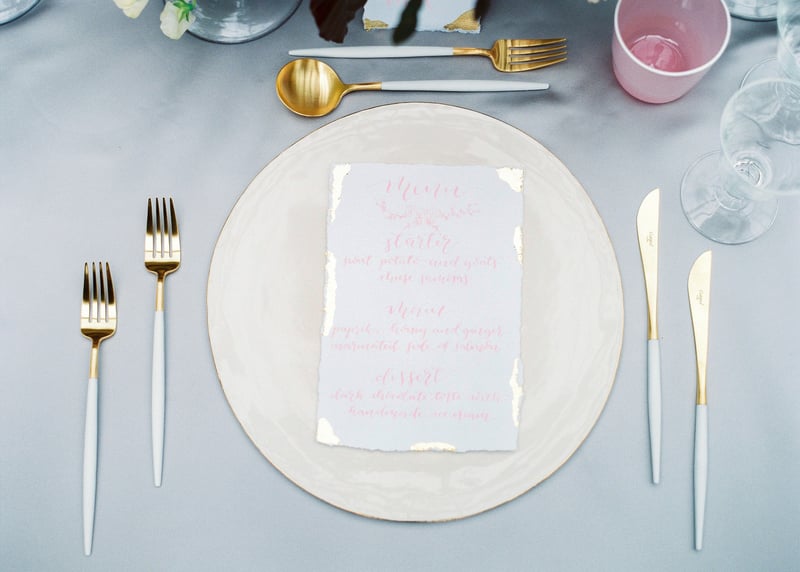 menu
starter
sweet potato and goats
cheese samosas
main
paprika, honey and ginger
marinated side of salmon
dessert
dark chocolate torte with
handmade ice cream